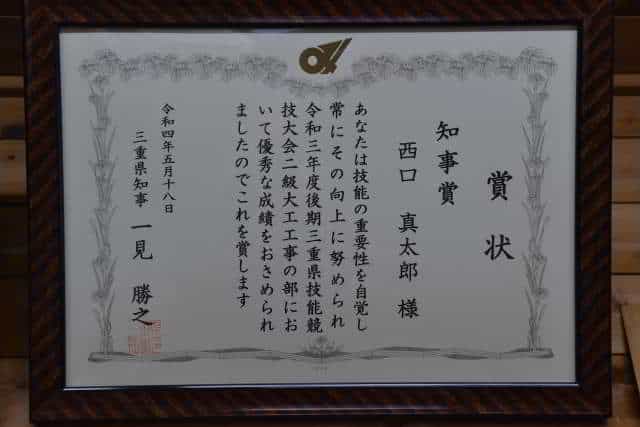 賞状
知事賞
西口 真太郎 様
あなたは技能の重要性を自覚し
常にその向上に努められ
令和三年度後期三重県技能競
技大会二級大工工事の部にお
いて優秀な成績をおさめられ
ましたのでこれを賞します
令和四年五月十八日
三重県知事 一見 勝之